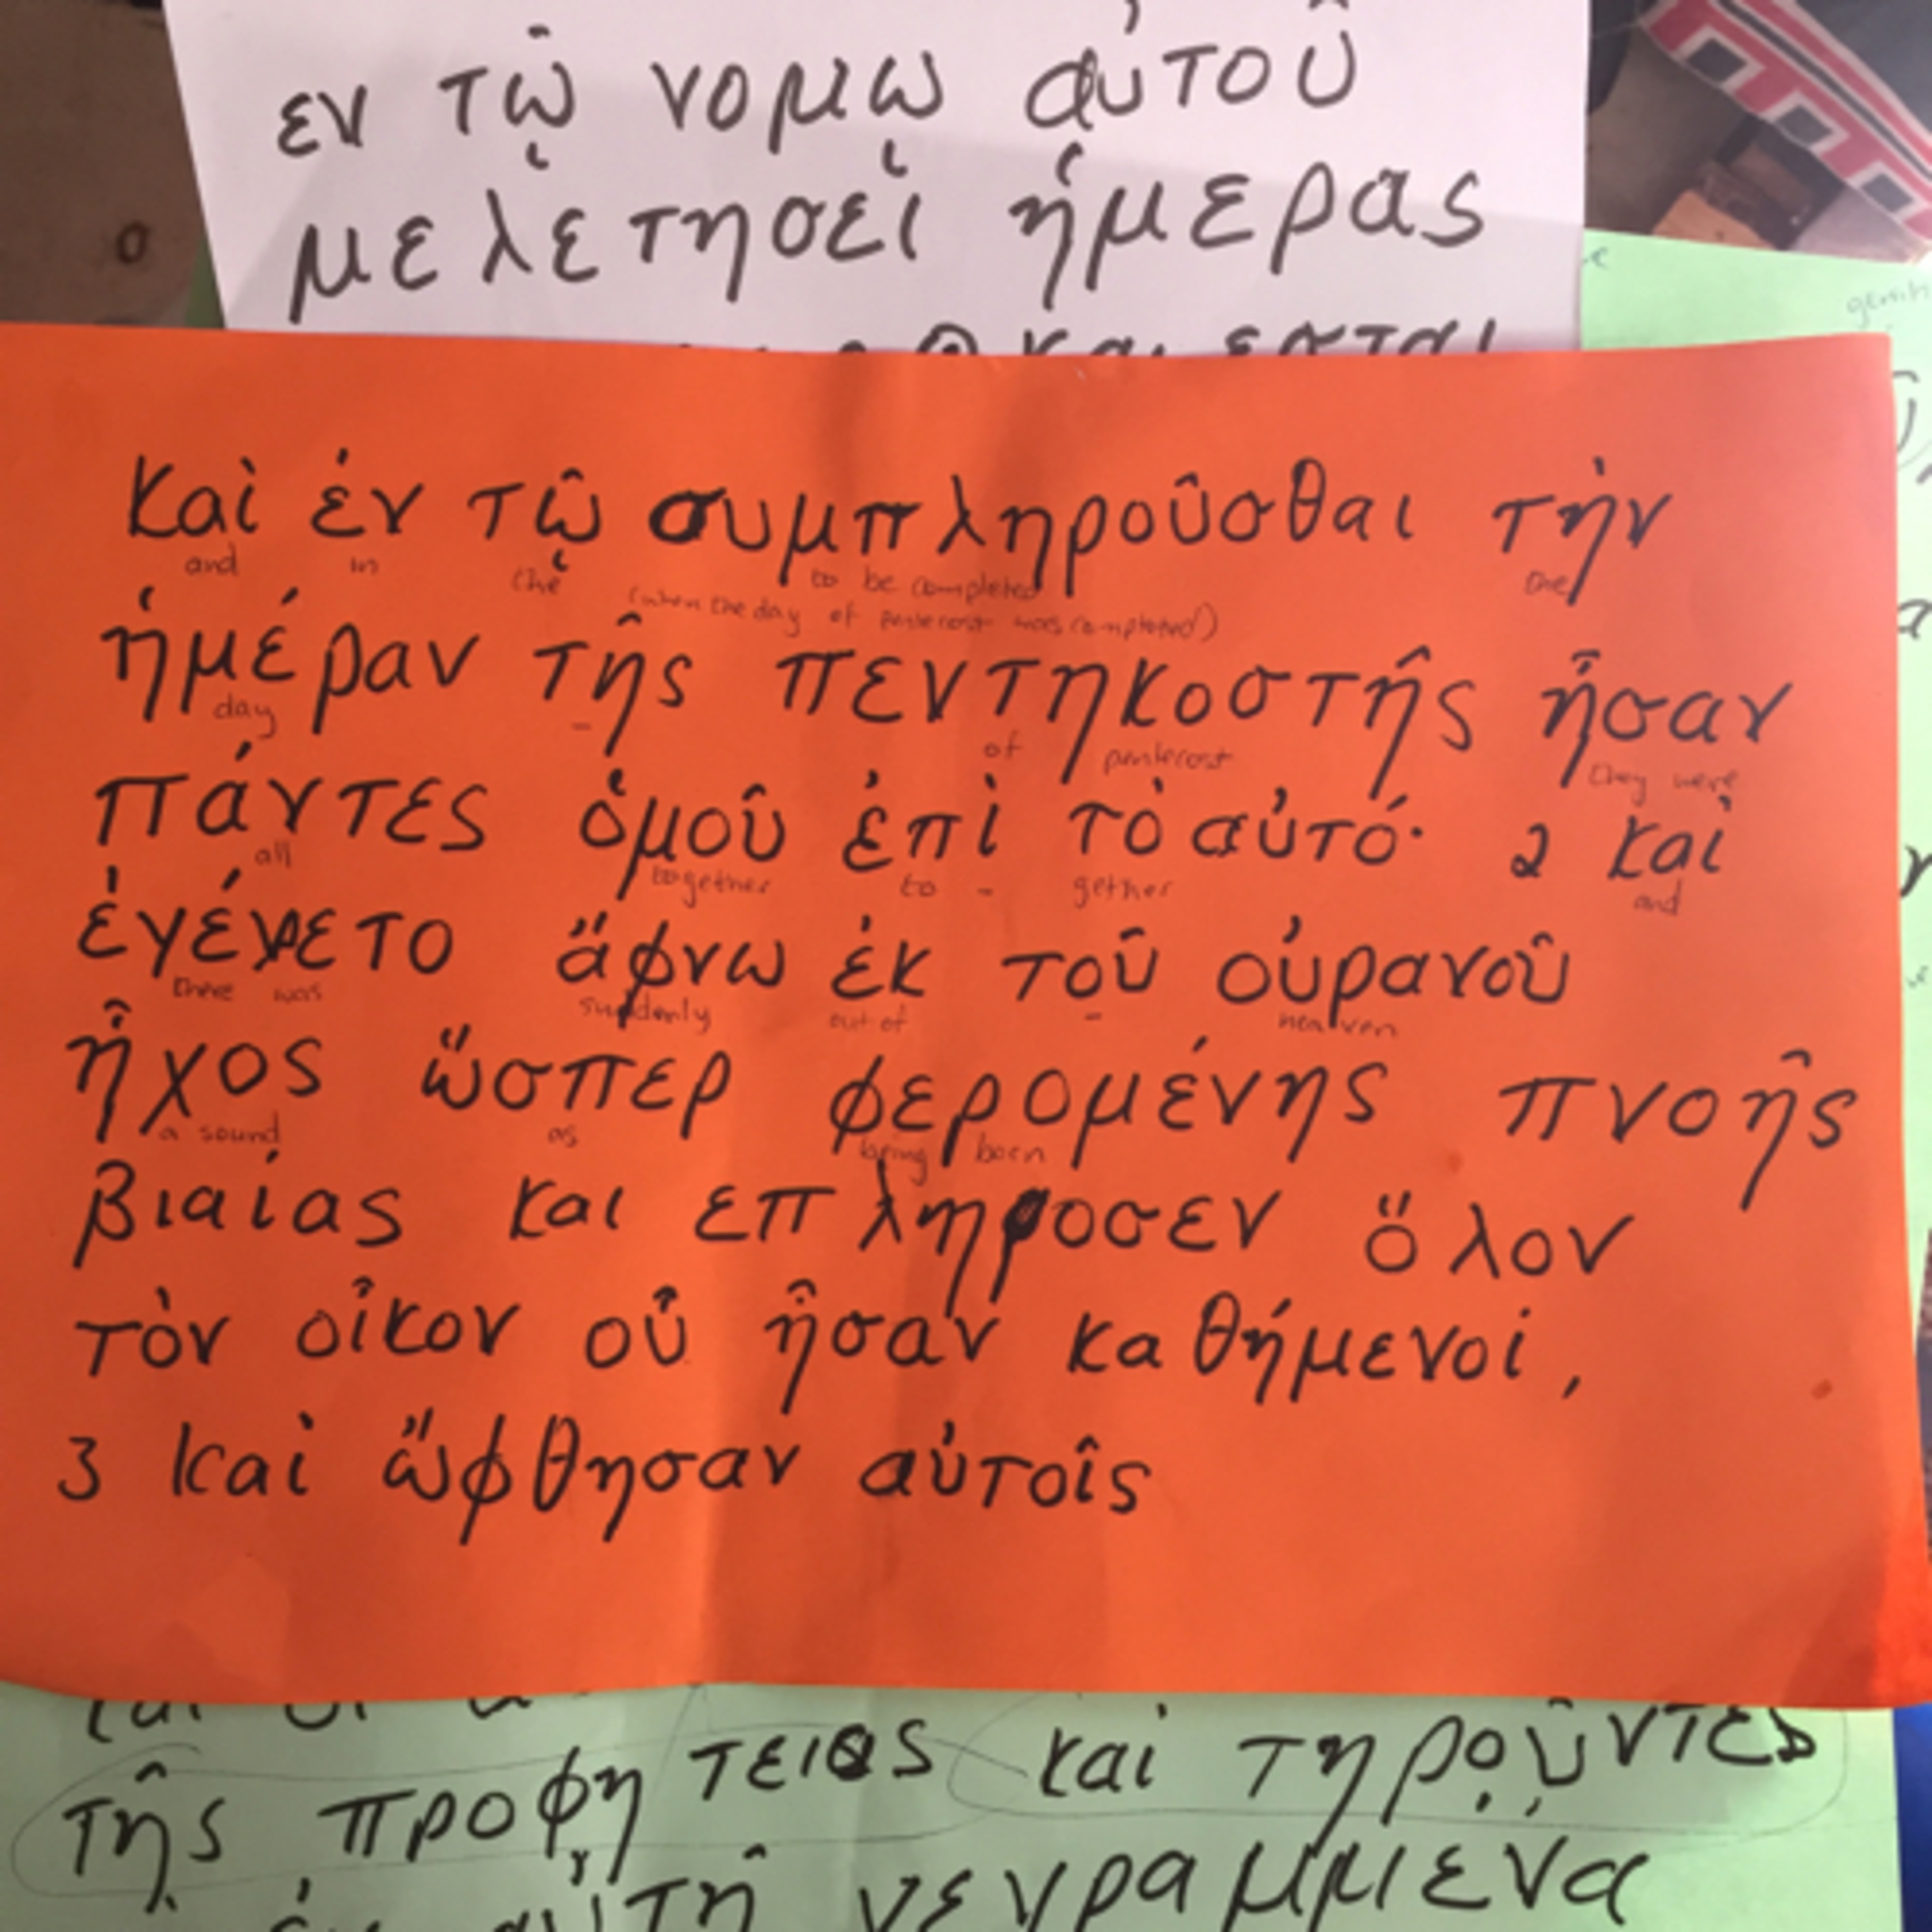 εν τῷ νομῳ αὐτοῦ
μελετησει ἡμερας
και εσται
Καὶ ἐν τῷ συμπληροῦσθαι τὴν
and in the to be completed the
(when the day of pentecost was completed)
ἡμέραν τῆς πεντηκοστῆς ἦσαν
day - of pentecost they were
πάντες ὁμοῦ ἐπὶ τὸ αὐτό· 2 Καὶ
all together to - gether and
ἐγένετο ἄφνω ἐκ τοῦ οὐρανοῦ
there was suddenly out of - heaven
ἦχος ὥσπερ φερομένης πνοῆς
a sound as being born
βιαίας και επληροσεν ὅλον
τὸν οἶκον οὗ ἦσαν καθήμενοι,
3 Καὶ ὤφθησαν αὐτοῖς
τῆς προφητειας καὶ τηροῦντες
αὐτῇ γεγραμμενα